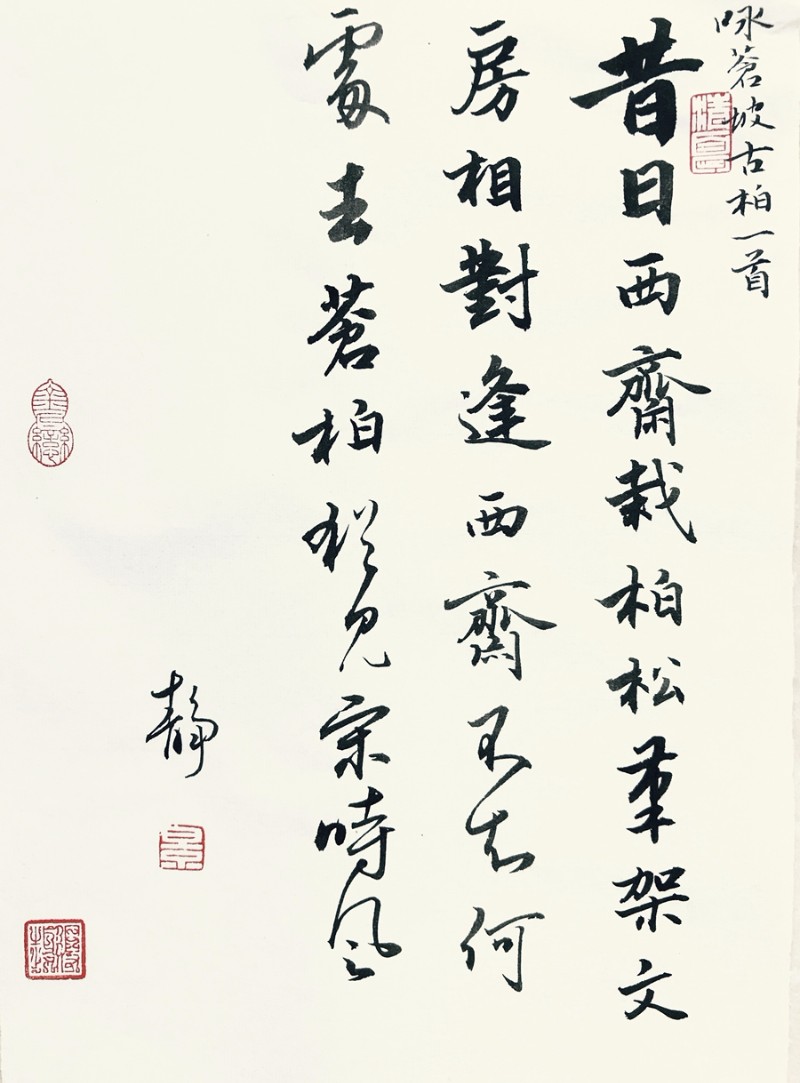 咏蒼坡古柏一首
昔日西齋栽柏松筆架文
房相對逢西齋不知何
處去蒼柏猶見宋時風
靜